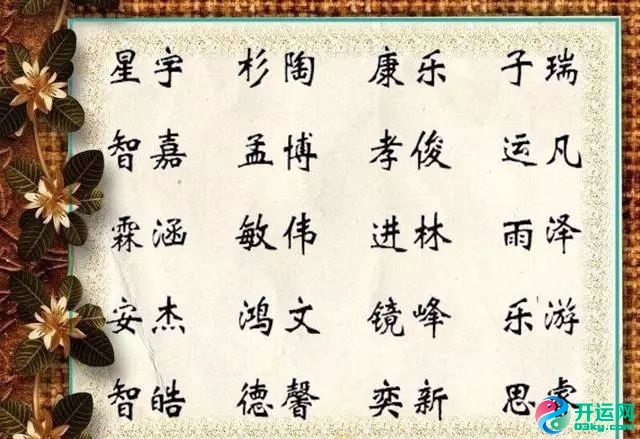 星宇 杉陶 康乐 子瑞
智嘉 孟博 孝俊 运凡
霖涵 敏伟 进林 雨泽
安杰 鸿文 镜峰 乐游
智皓 德馨 奕新 思
开运网